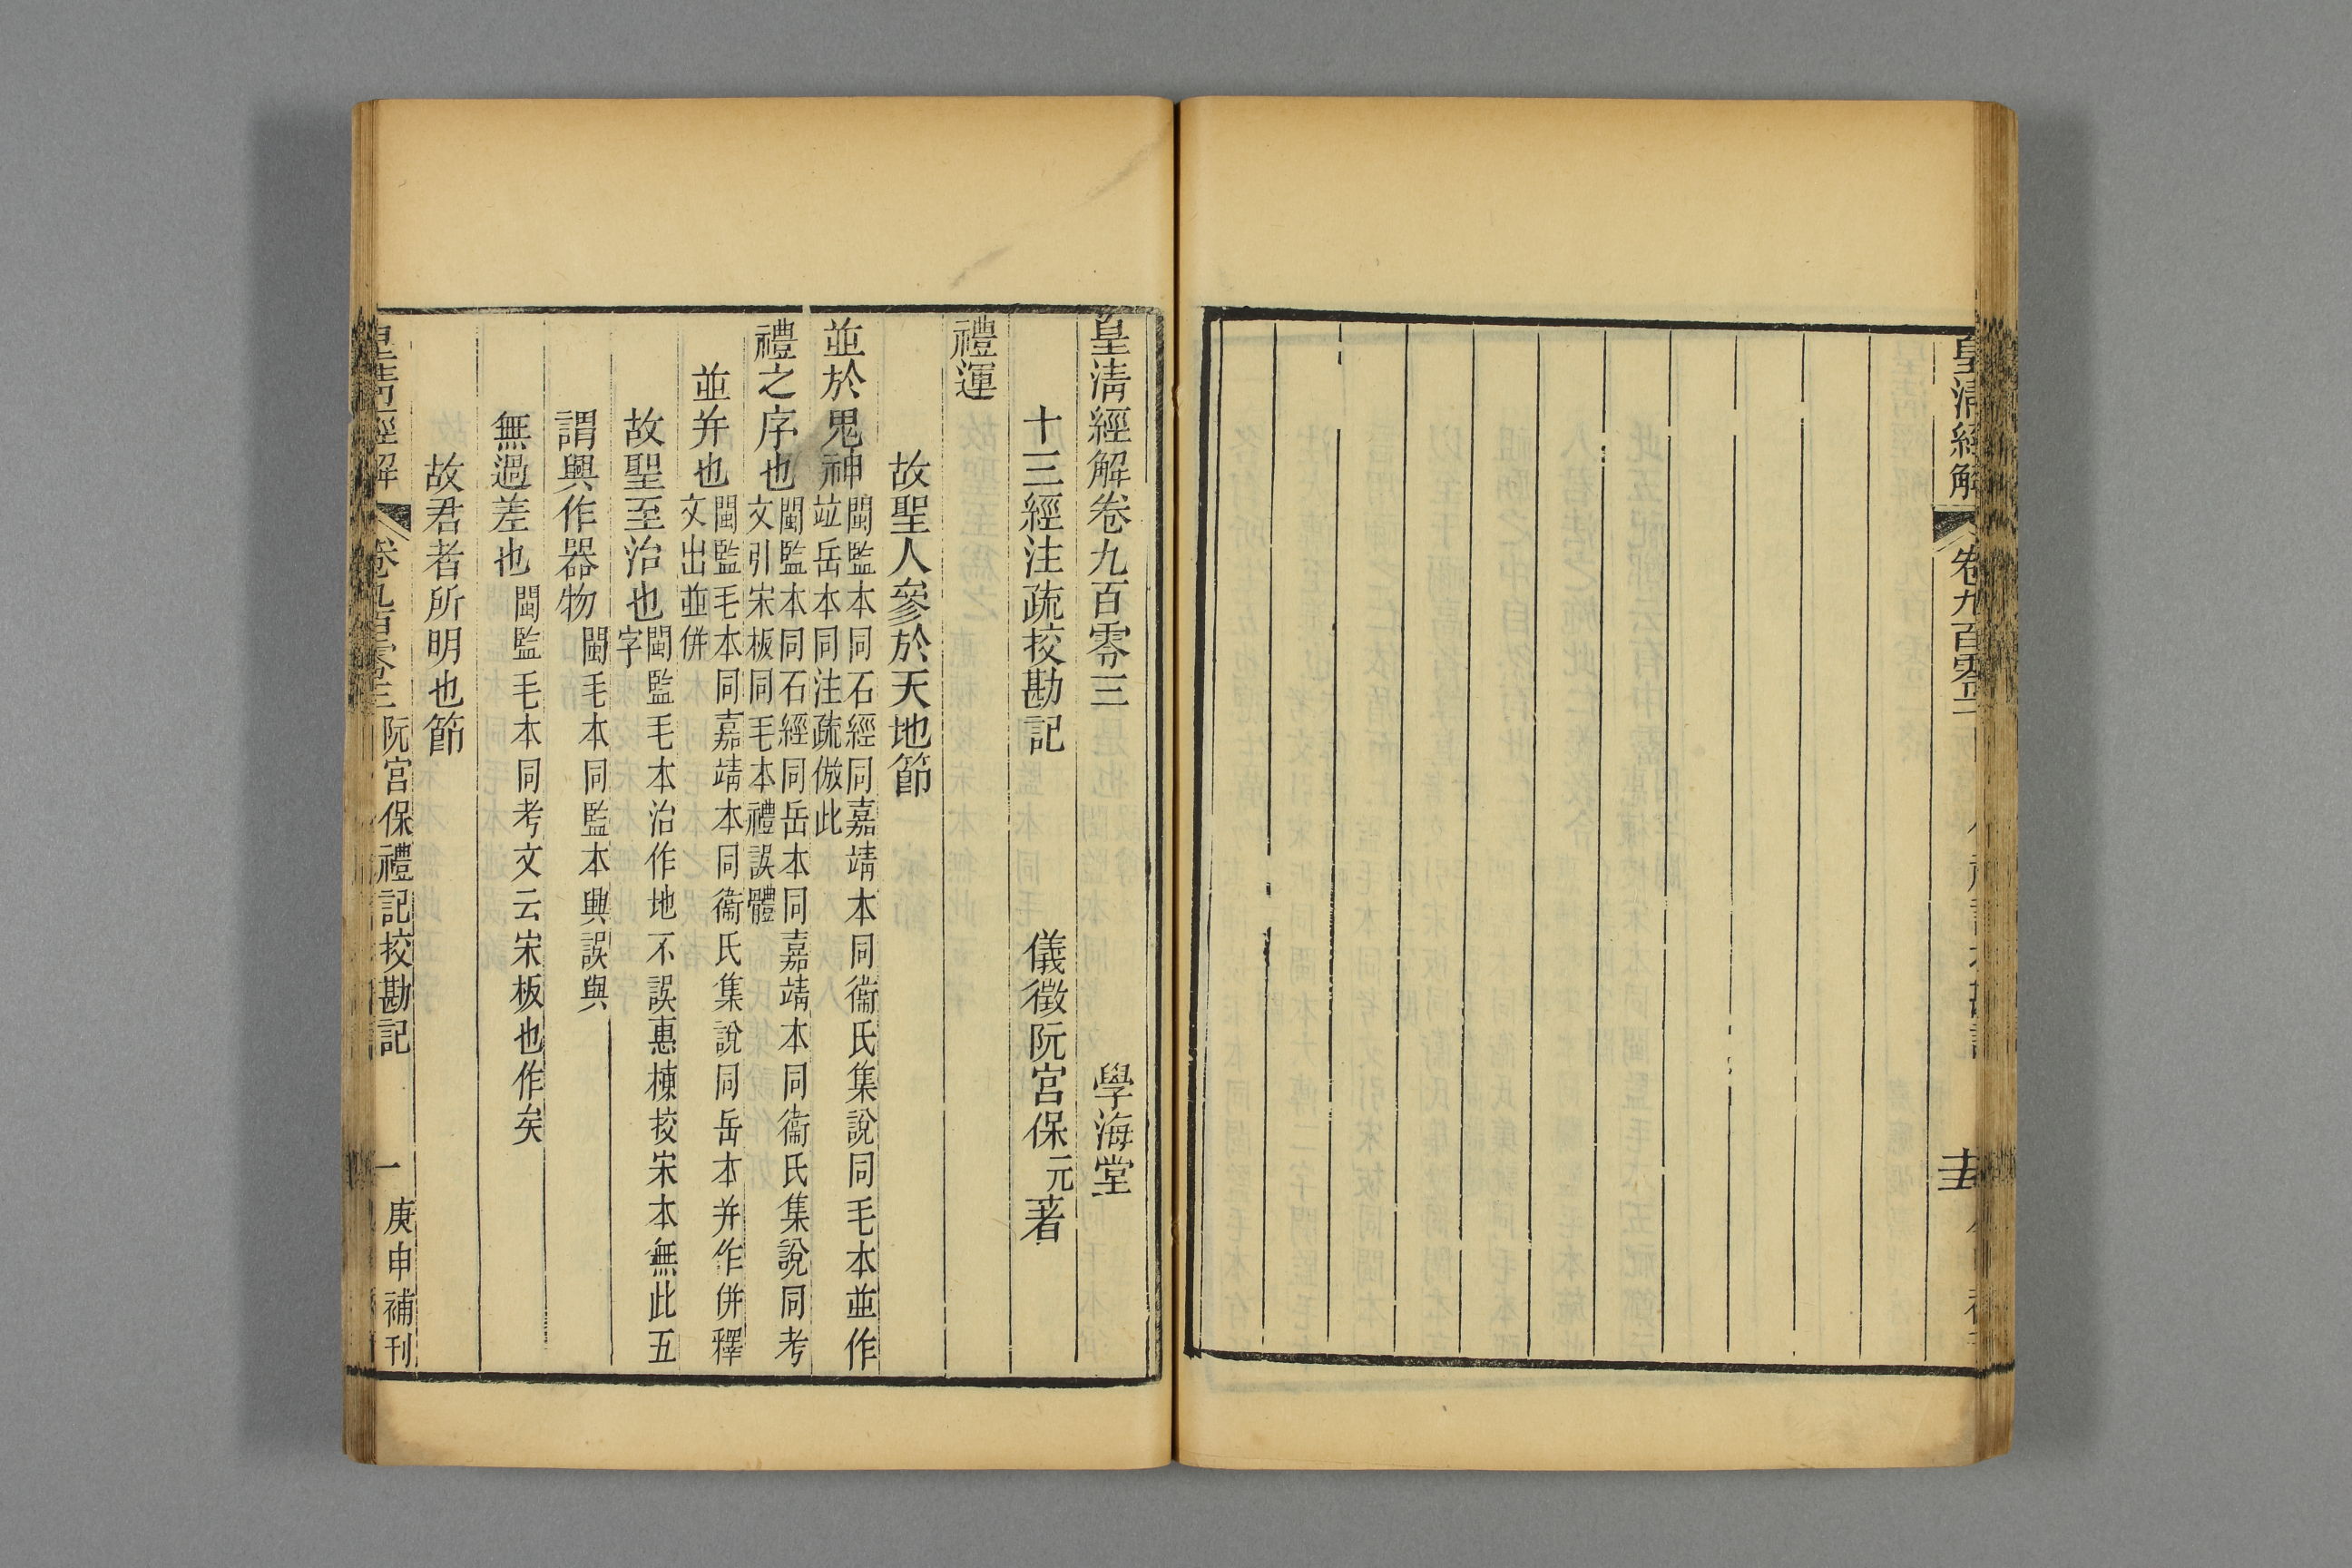 皇清經解 卷九百零二
皇清經解卷九百零三 學海堂
十三經注疏挍勘記 儀徵阮宮保元著
禮運
故聖人參於天地節
並於鬼神閩監本同石經同嘉靖本同衞氏集說同毛本並作
竝岳本同注疏倣此
禮之序也閩監本同石經同岳本同嘉靖本同衞氏集說同考
文引宋板同毛本禮誤體
並并也閩監毛本同嘉靖本同衞氏集說同岳本并作併釋
文出並併
故聖至治也閩監毛本治作地不誤惠棟挍宋本無此五
字
謂興作器物閩毛本同監本興誤與
無過差也閩監毛本同考文云宋板也作矣
故君者所明也節
皇清經解 卷九百零三 阮宮保禮記挍勘記 一 庚申補刊